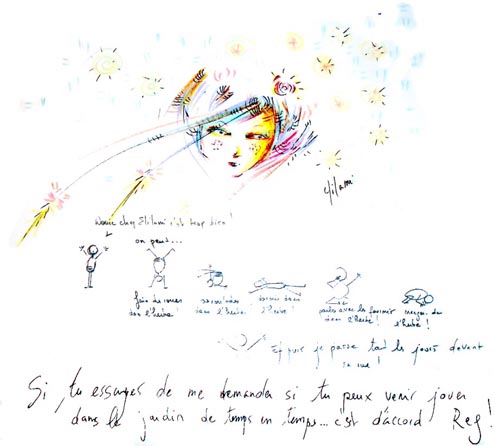 Elilami
chez Elilami c'est trop bien !
on peut...
faire
dans l'herbe !
dans l'herbe !
dans
l'herbe !
parler avec les fourmis
dans l'herbe !
manger de
l'herbe !
Et puis je passe tous les jours devant
sa rue !
Si tu essayes de me demander si tu peux venir jouer
dans le jardin de temps en temps... c'est d'accord Reg !